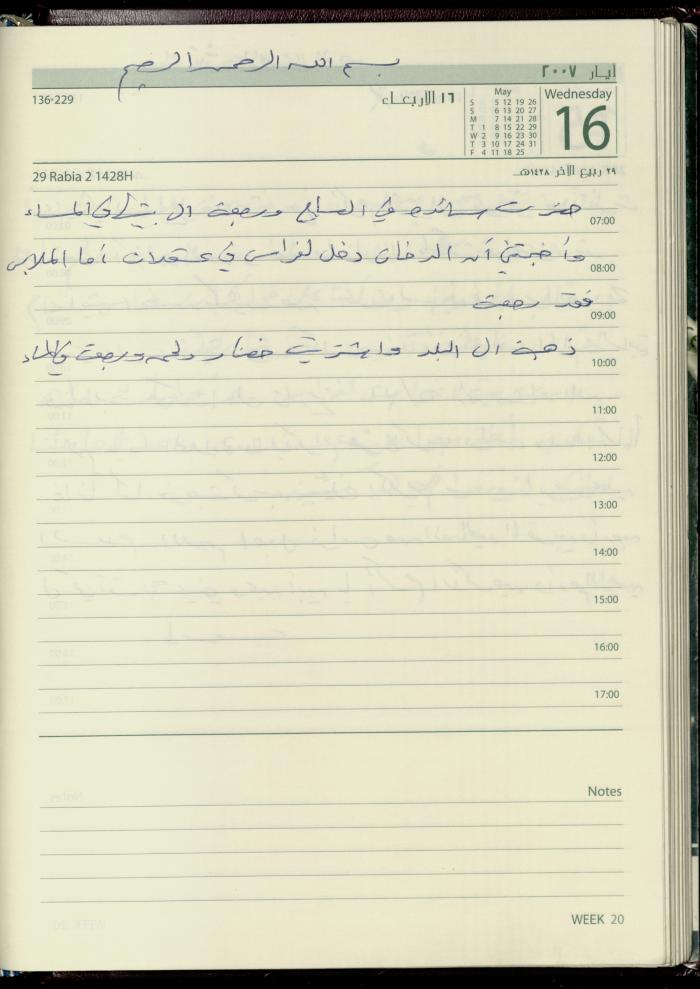 بسم الله الرحمن الرحيم
أيار ٢٠٠٧
136-229
١٦ الأربعاء
May
S 5 12 19 26
S 6 13 20 27
M 7 14 21 28
T 1 8 15 22 29
W 2 9 16 23 30
T 3 10 17 24 31
F 4 11 18 25
Wednesday
16
29 Rabia 2 1428H
٢٩ ربيع الآخر ١٤٢٨هـ
حضرت سائده في الصباح ورجعة الى بيتها في المساء
07:00
وأخبرتني أن الدخان دخل لفراس في عسقلان أما الملابس
08:00
فقد رجعة
09:00
ذهبة الى البلد واشتريت خضار ولحمه ورجعت في المساء
10:00
11:00
12:00
13:00
14:00
15:00
16:00
17:00
Notes
WEEK 20